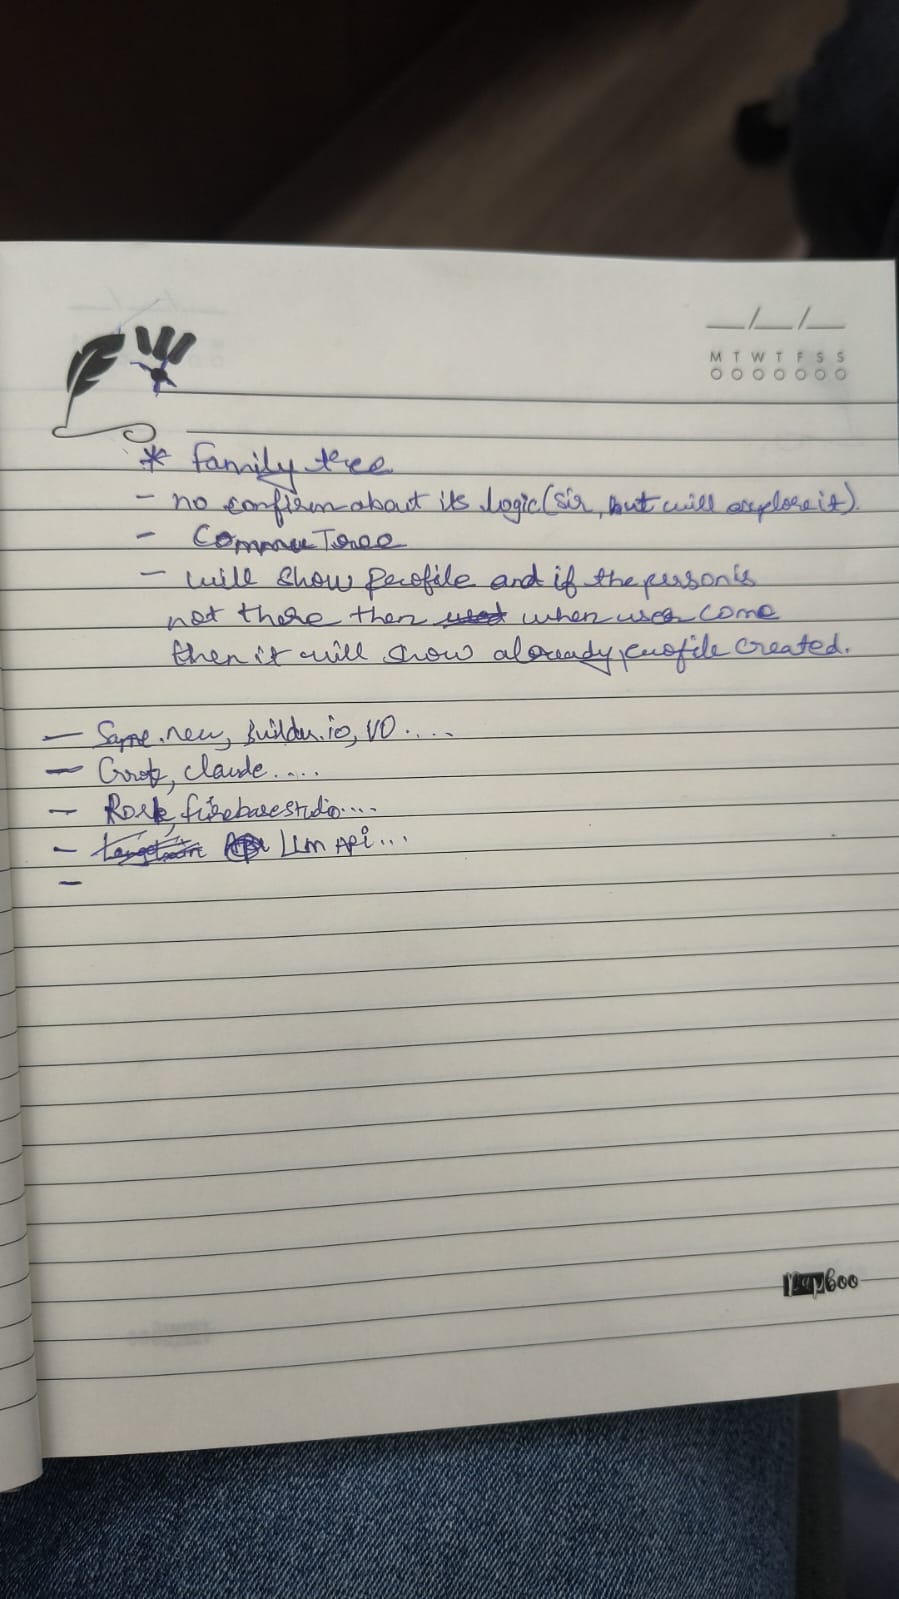 M T W T F S S
* family tree
- no confirm about its logic (sir, but will explore it).
- Tree
- will show profile and if the person is
not there then when user come
then it will show already profile created.
- Same.new, Builder.io, V0....
- claude....
- firebase studio....
- LLM API...
-